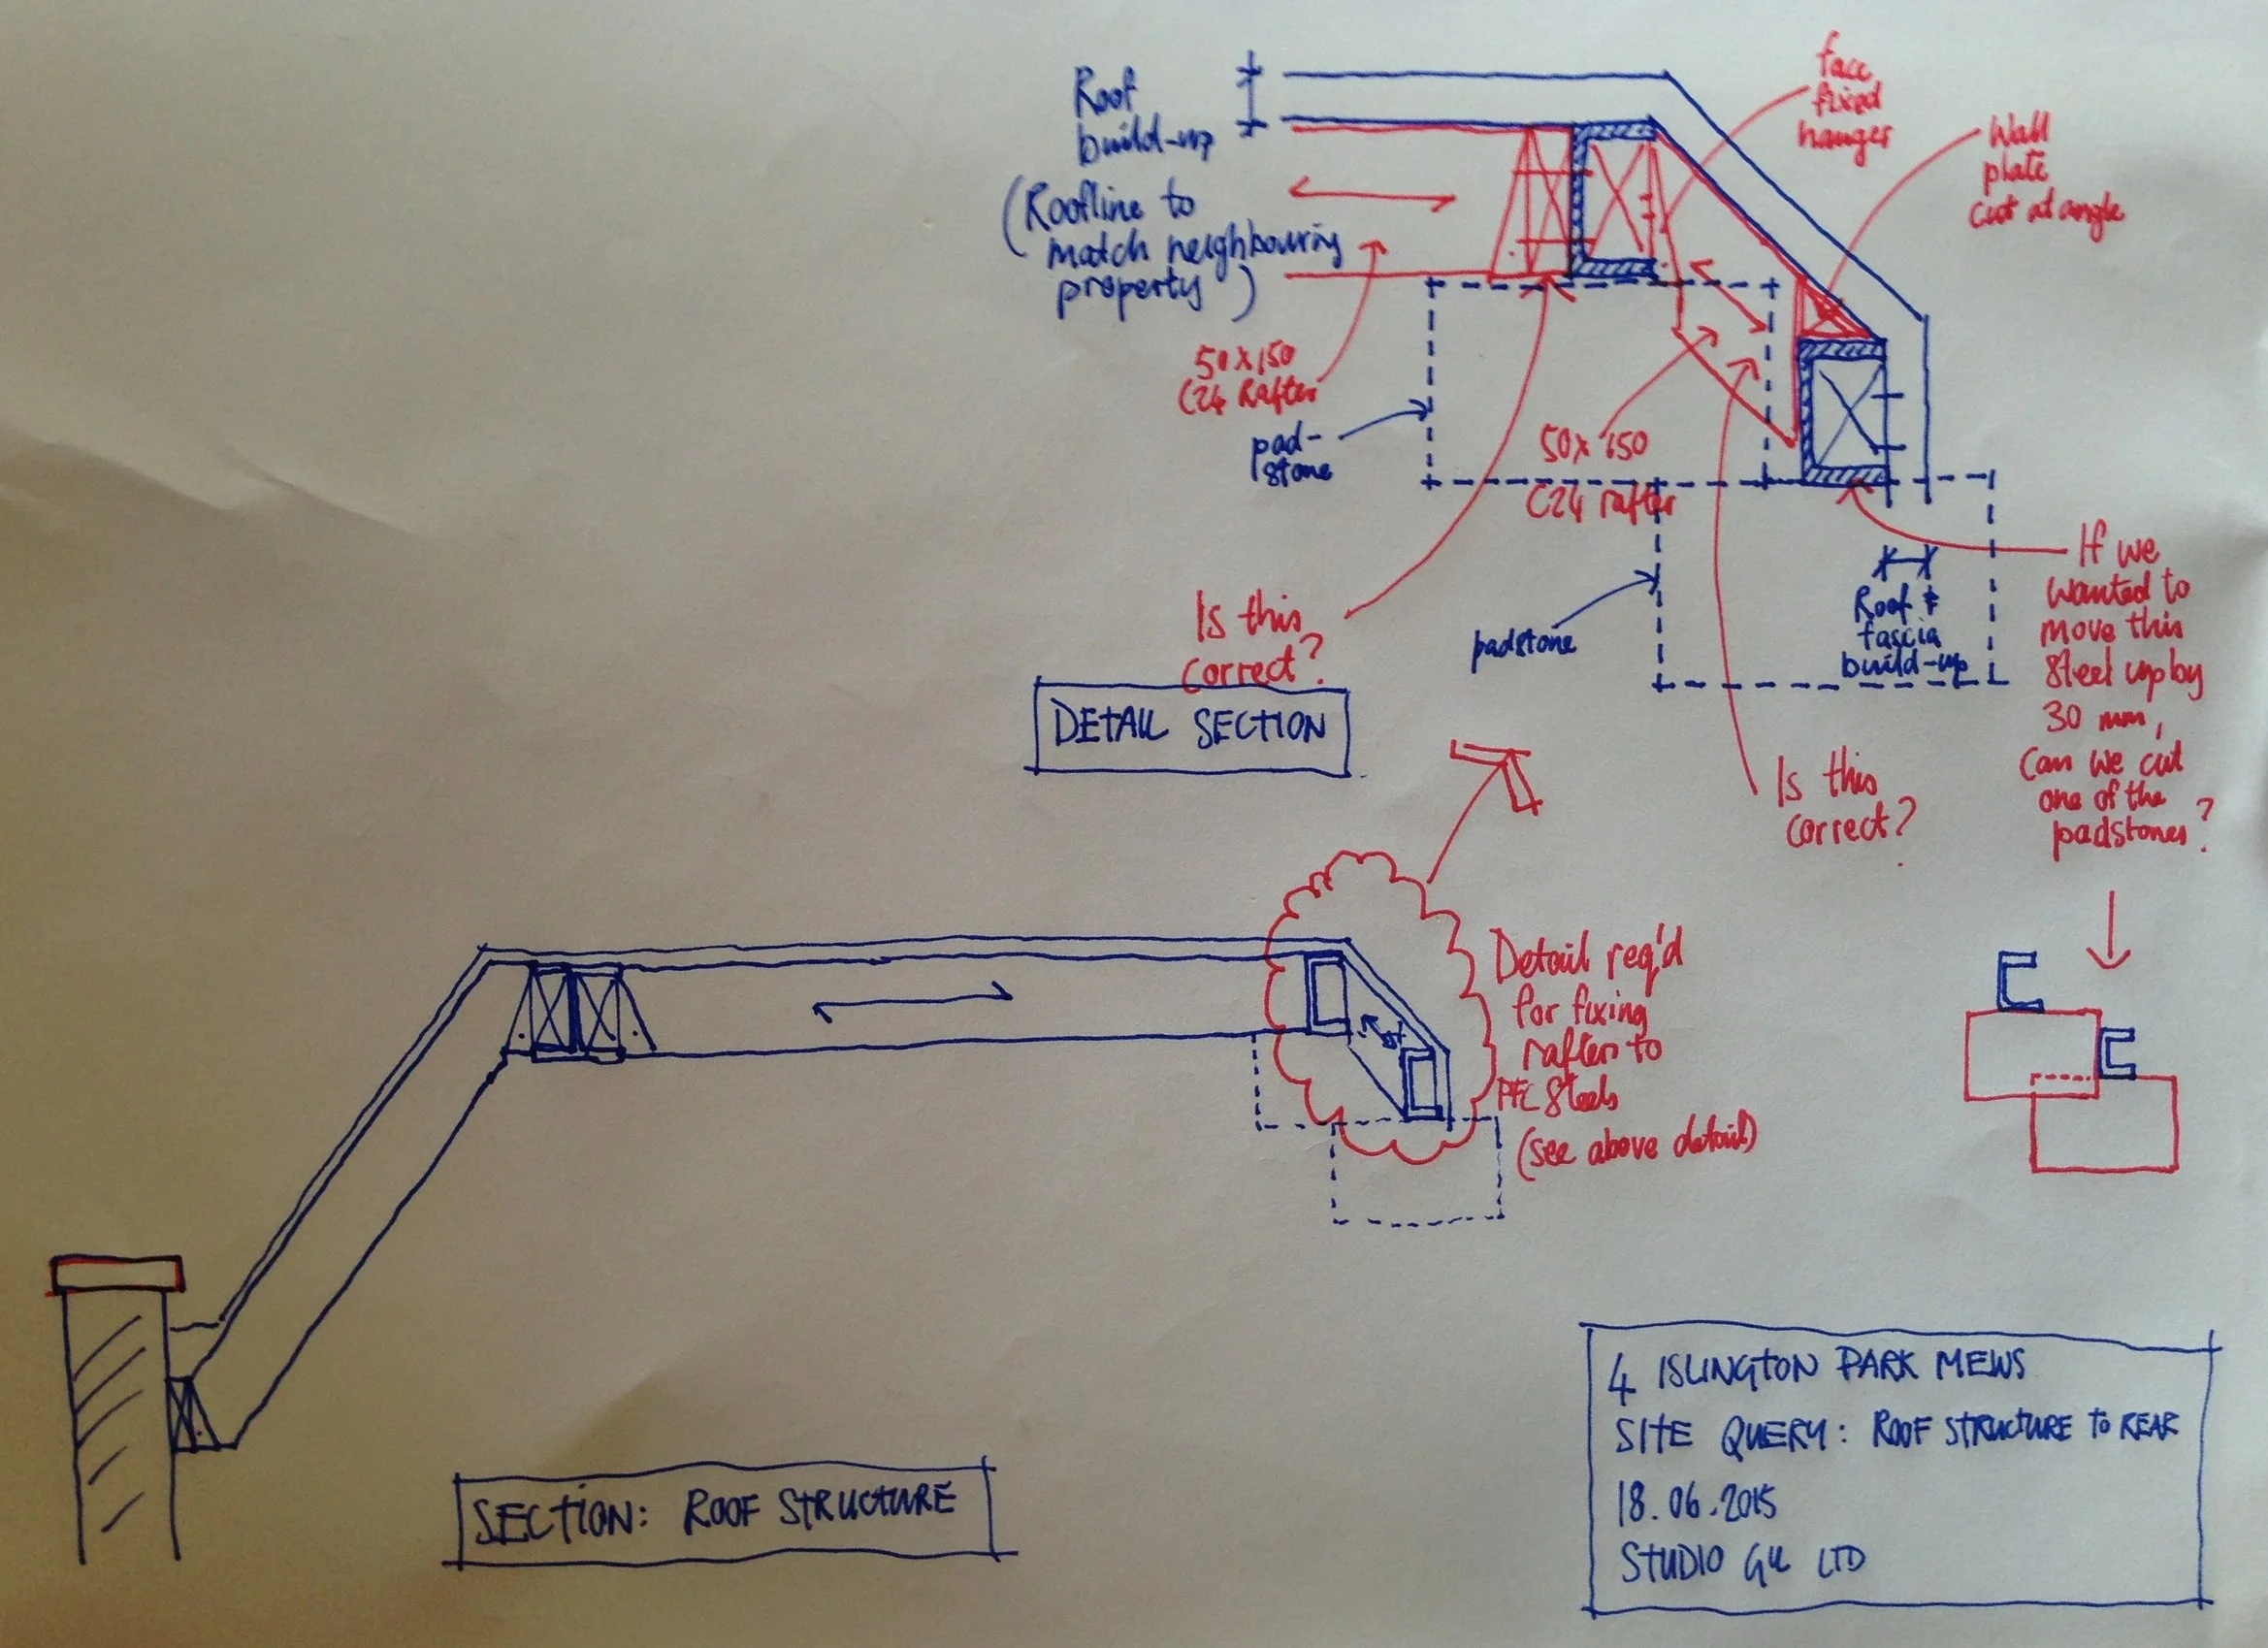 Roof
build-up
(Roofline to
match neighbouring
property)
face
fixed
hanger
Wall
plate
cut at angle
50x150
C24 Rafter
pad-
stone
50x150
C24 rafter
Is this
correct?
padstone
Roof &
fascia
build-up
If we
wanted to
move this
steel up by
30 mm,
can we cut
one of the
padstones?
DETAIL SECTION
Is this
correct?
Detail req'd
for fixing
rafters to
PFC Steels
(see above detail)
SECTION: ROOF STRUCTURE
4 ISLINGTON PARK MEWS
SITE QUERY: ROOF STRUCTURE TO REAR
18.06.2015
STUDIO GIL LTD